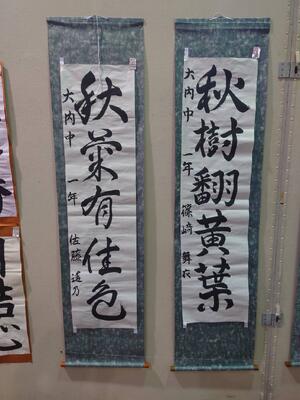 秋樹翻黄葉
大内中 一年 篠崎 舞衣
秋菊有佳色
大内中 一年 佐藤 遥乃